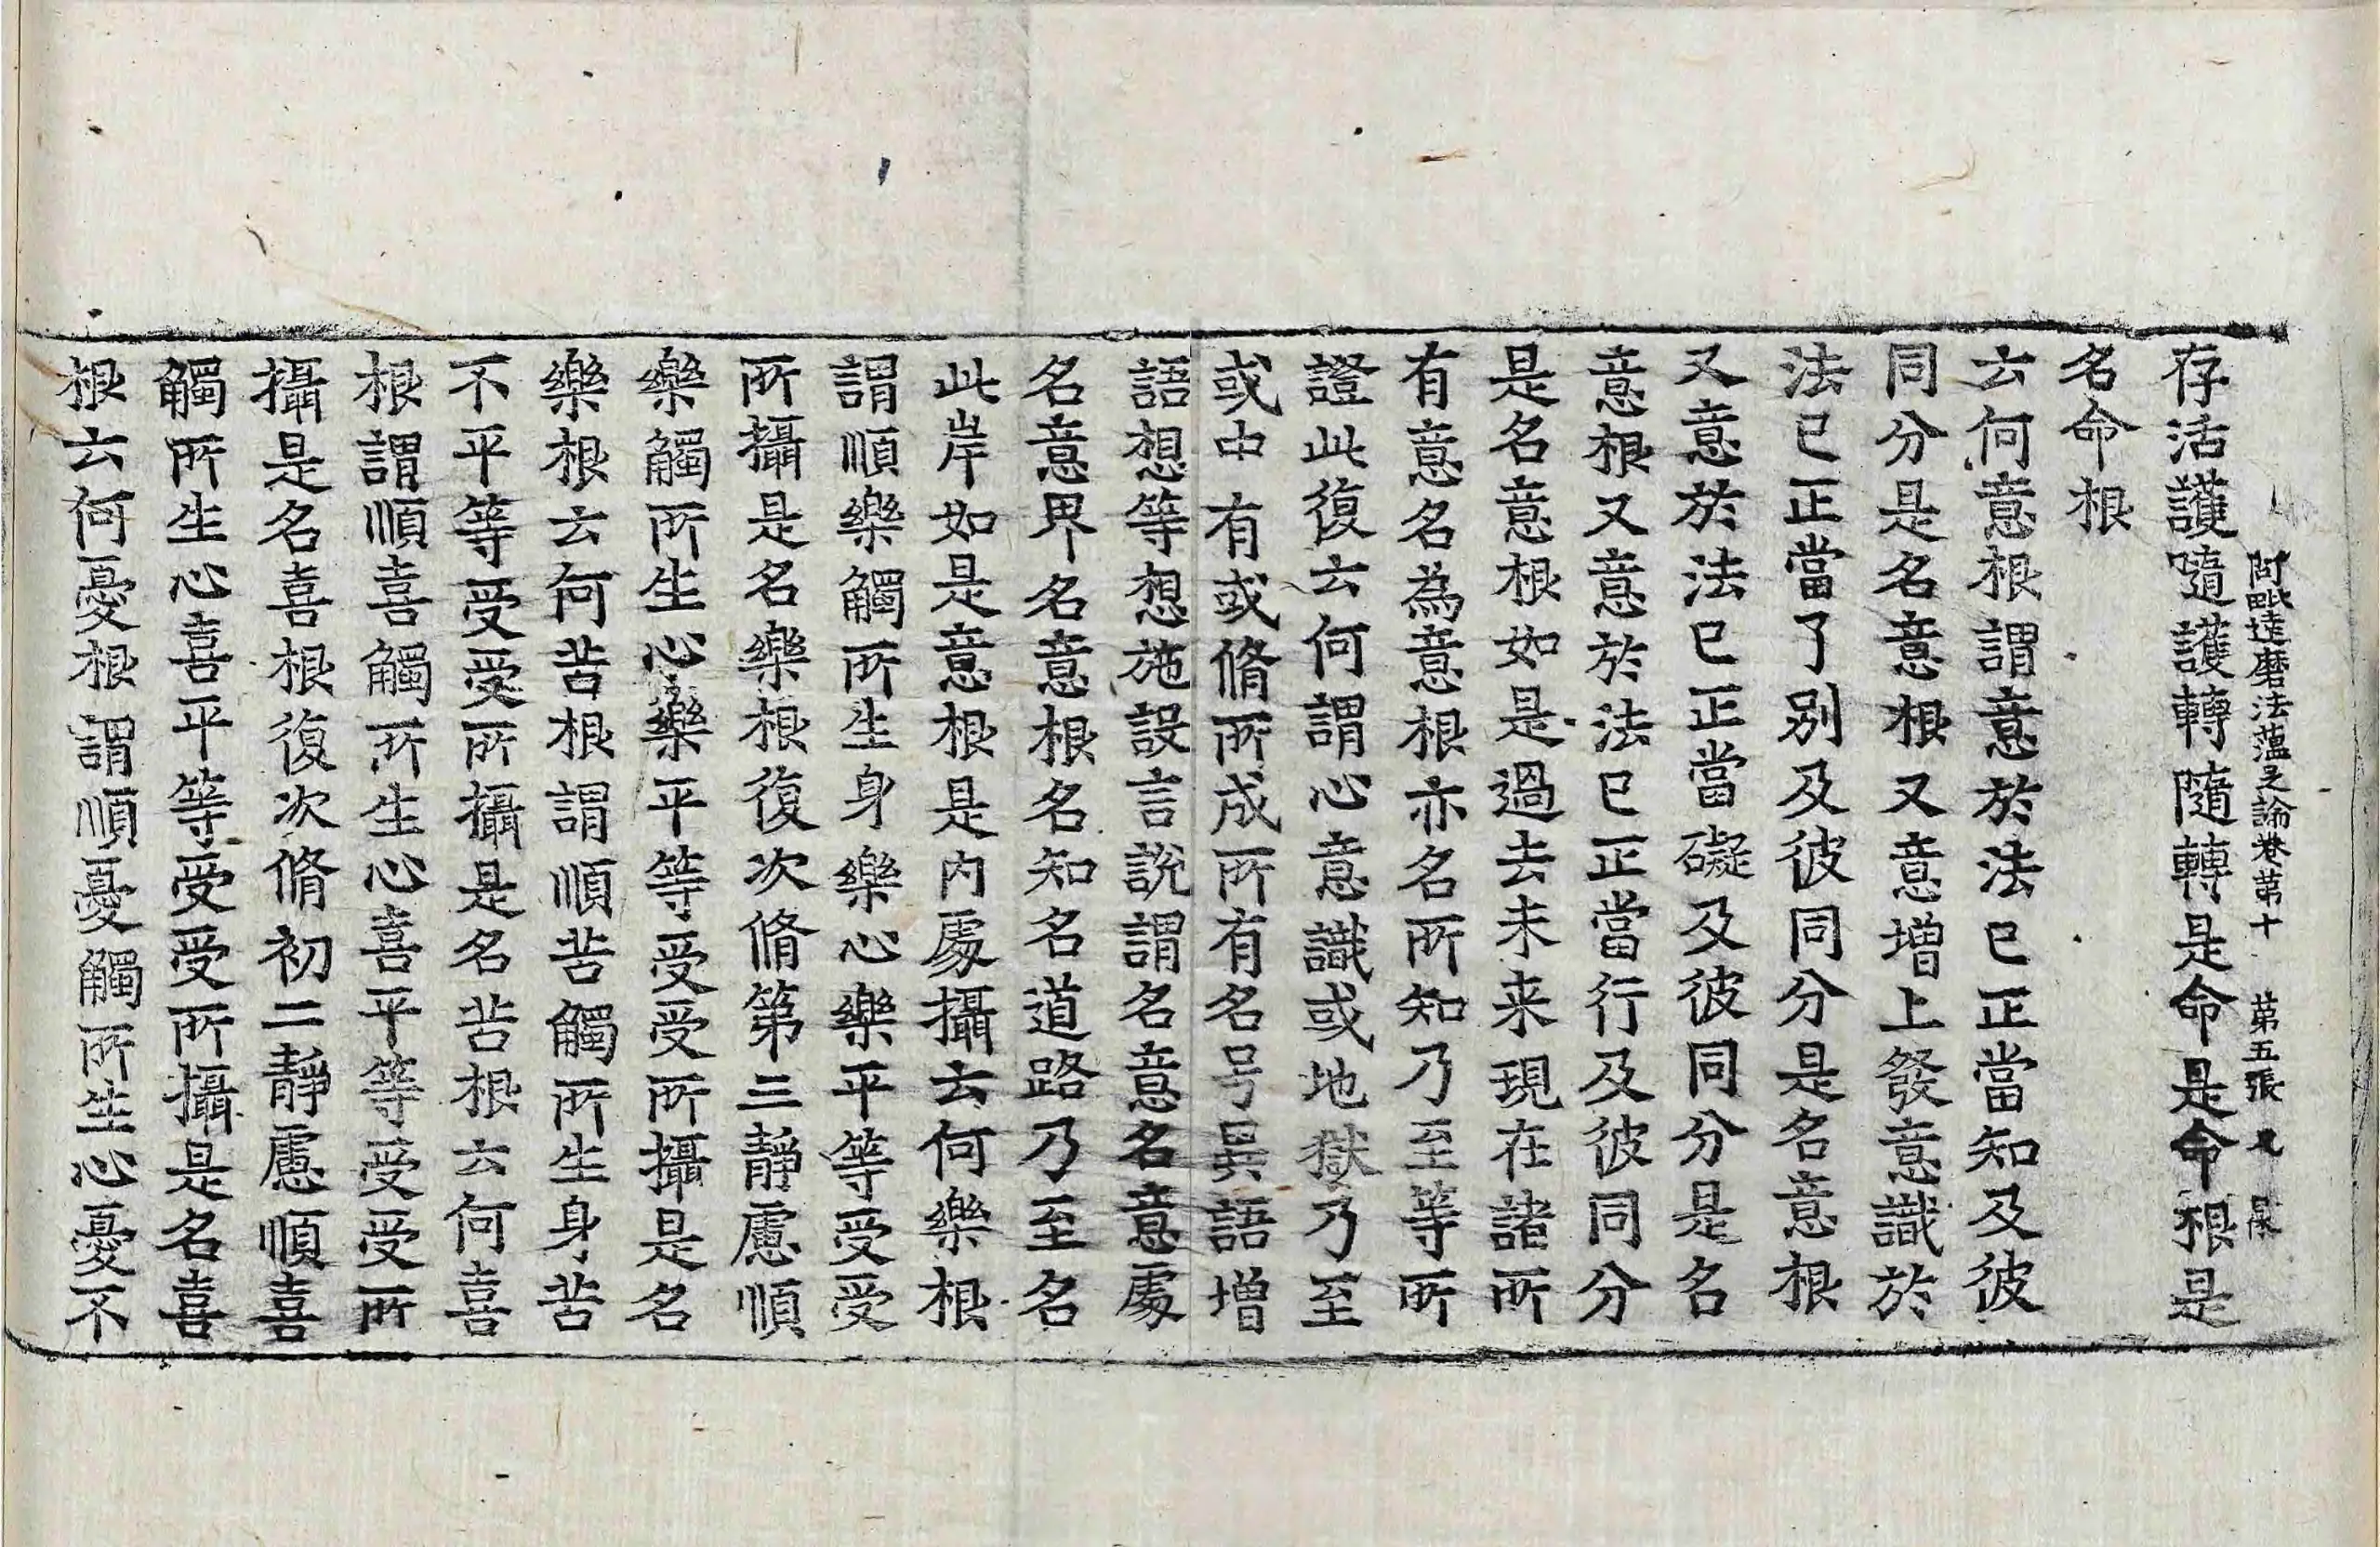 阿毗達磨法蘊足論卷第十 第五張
存活護隨護轉隨轉是命是命根是
名命根
云何意根謂意於法已正當知及彼
同分是名意根又意增上發意識於
法已正當了別及彼同分是名意根
又意於法已正當礙及彼同分是名
意根又意於法已正當行及彼同分
是名意根如是過去未来現在諸所
有意名為意根亦名所知乃至等所
證此復云何謂心意識或地獄乃至
或中有或脩所成所有名号異語增
語想等想施設言說謂名意名意處
名意界名意根名知名道路乃至名
此岸如是意根是內處攝云何樂根
謂順樂觸所生身樂心樂平等受受
所攝是名樂根復次脩第三靜慮順
樂觸所生心樂平等受受所攝是名
樂根云何苦根謂順苦觸所生身苦
不平等受受所攝是名苦根云何喜
根謂順喜觸所生心喜平等受受所
攝是名喜根復次脩初二靜慮順喜
觸所生心喜平等受受所攝是名喜
根云何憂根謂順憂觸所生心憂不